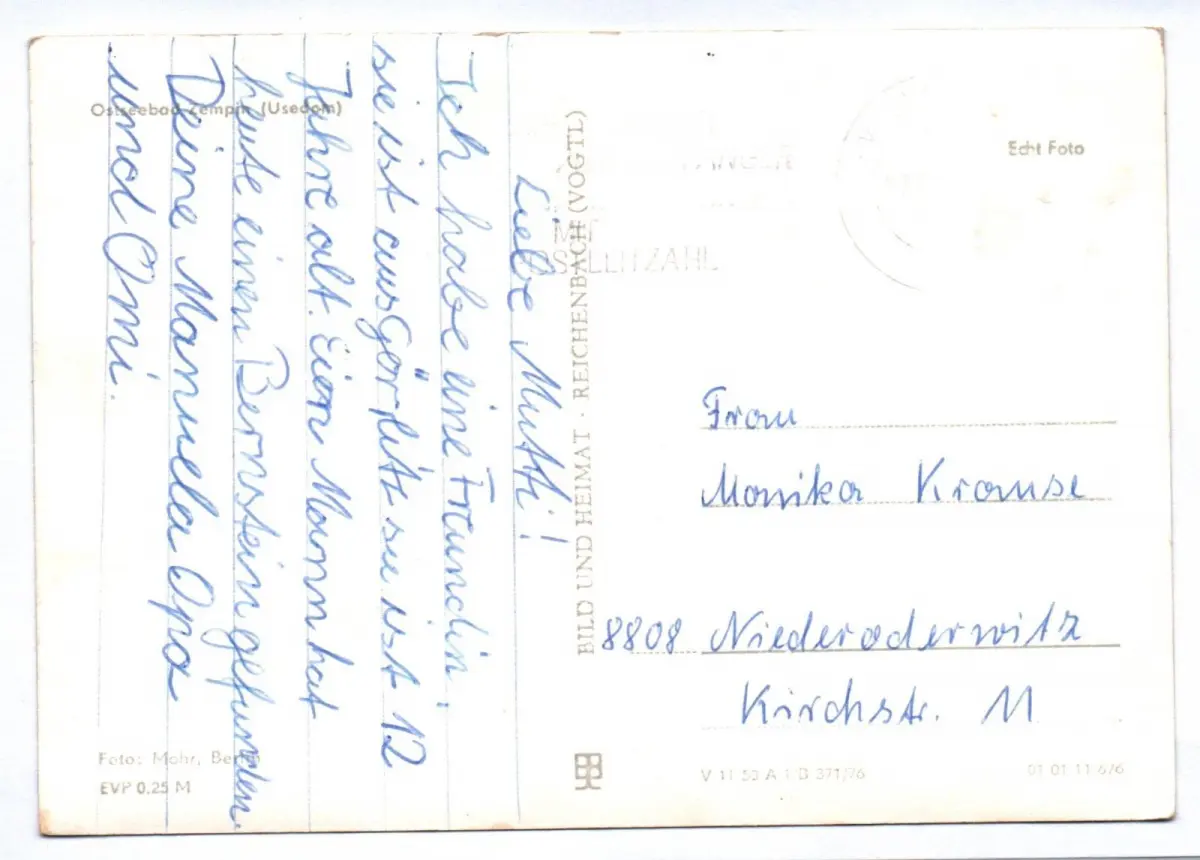 Ostseebad Zempin (Usedom)
Liebe Mutti!
Ich habe eine Fraundin,
sie ist aus Görlitz sie ist 12
Jahre alt. Ein Mann hat
heute einen Bernstein gefunden.
Deine Manuela Opa
und Omi.
Foto: Mohr, Berlin
EVP 0,25 M
BILD UND HEIMAT · REICHENBACH (VOGTL)
MIT
Echt Foto
Frau
Monika Krause
8808 Niederoderwitz
Kirchstr. 11
V 11 50 A 1/B 371/76
01 01 11 676